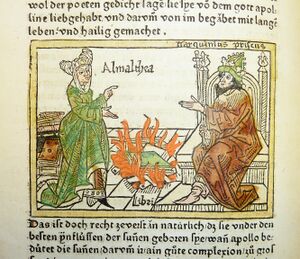 wol der poeten gedicht sage sie spe vō dem gott apol
line lieb gehabt vnd darvm von im begabet mit lange
leben / vnd hailig gemachet .
tarquinius priscus
Almalthea
libri
Das ist doch recht ze verstē in natürlich dz sie vnder den
besten ynflüssen der suñen geboren spe wañ apollo be
dütet die suñen / darum ir ain güte complexion / zů gros